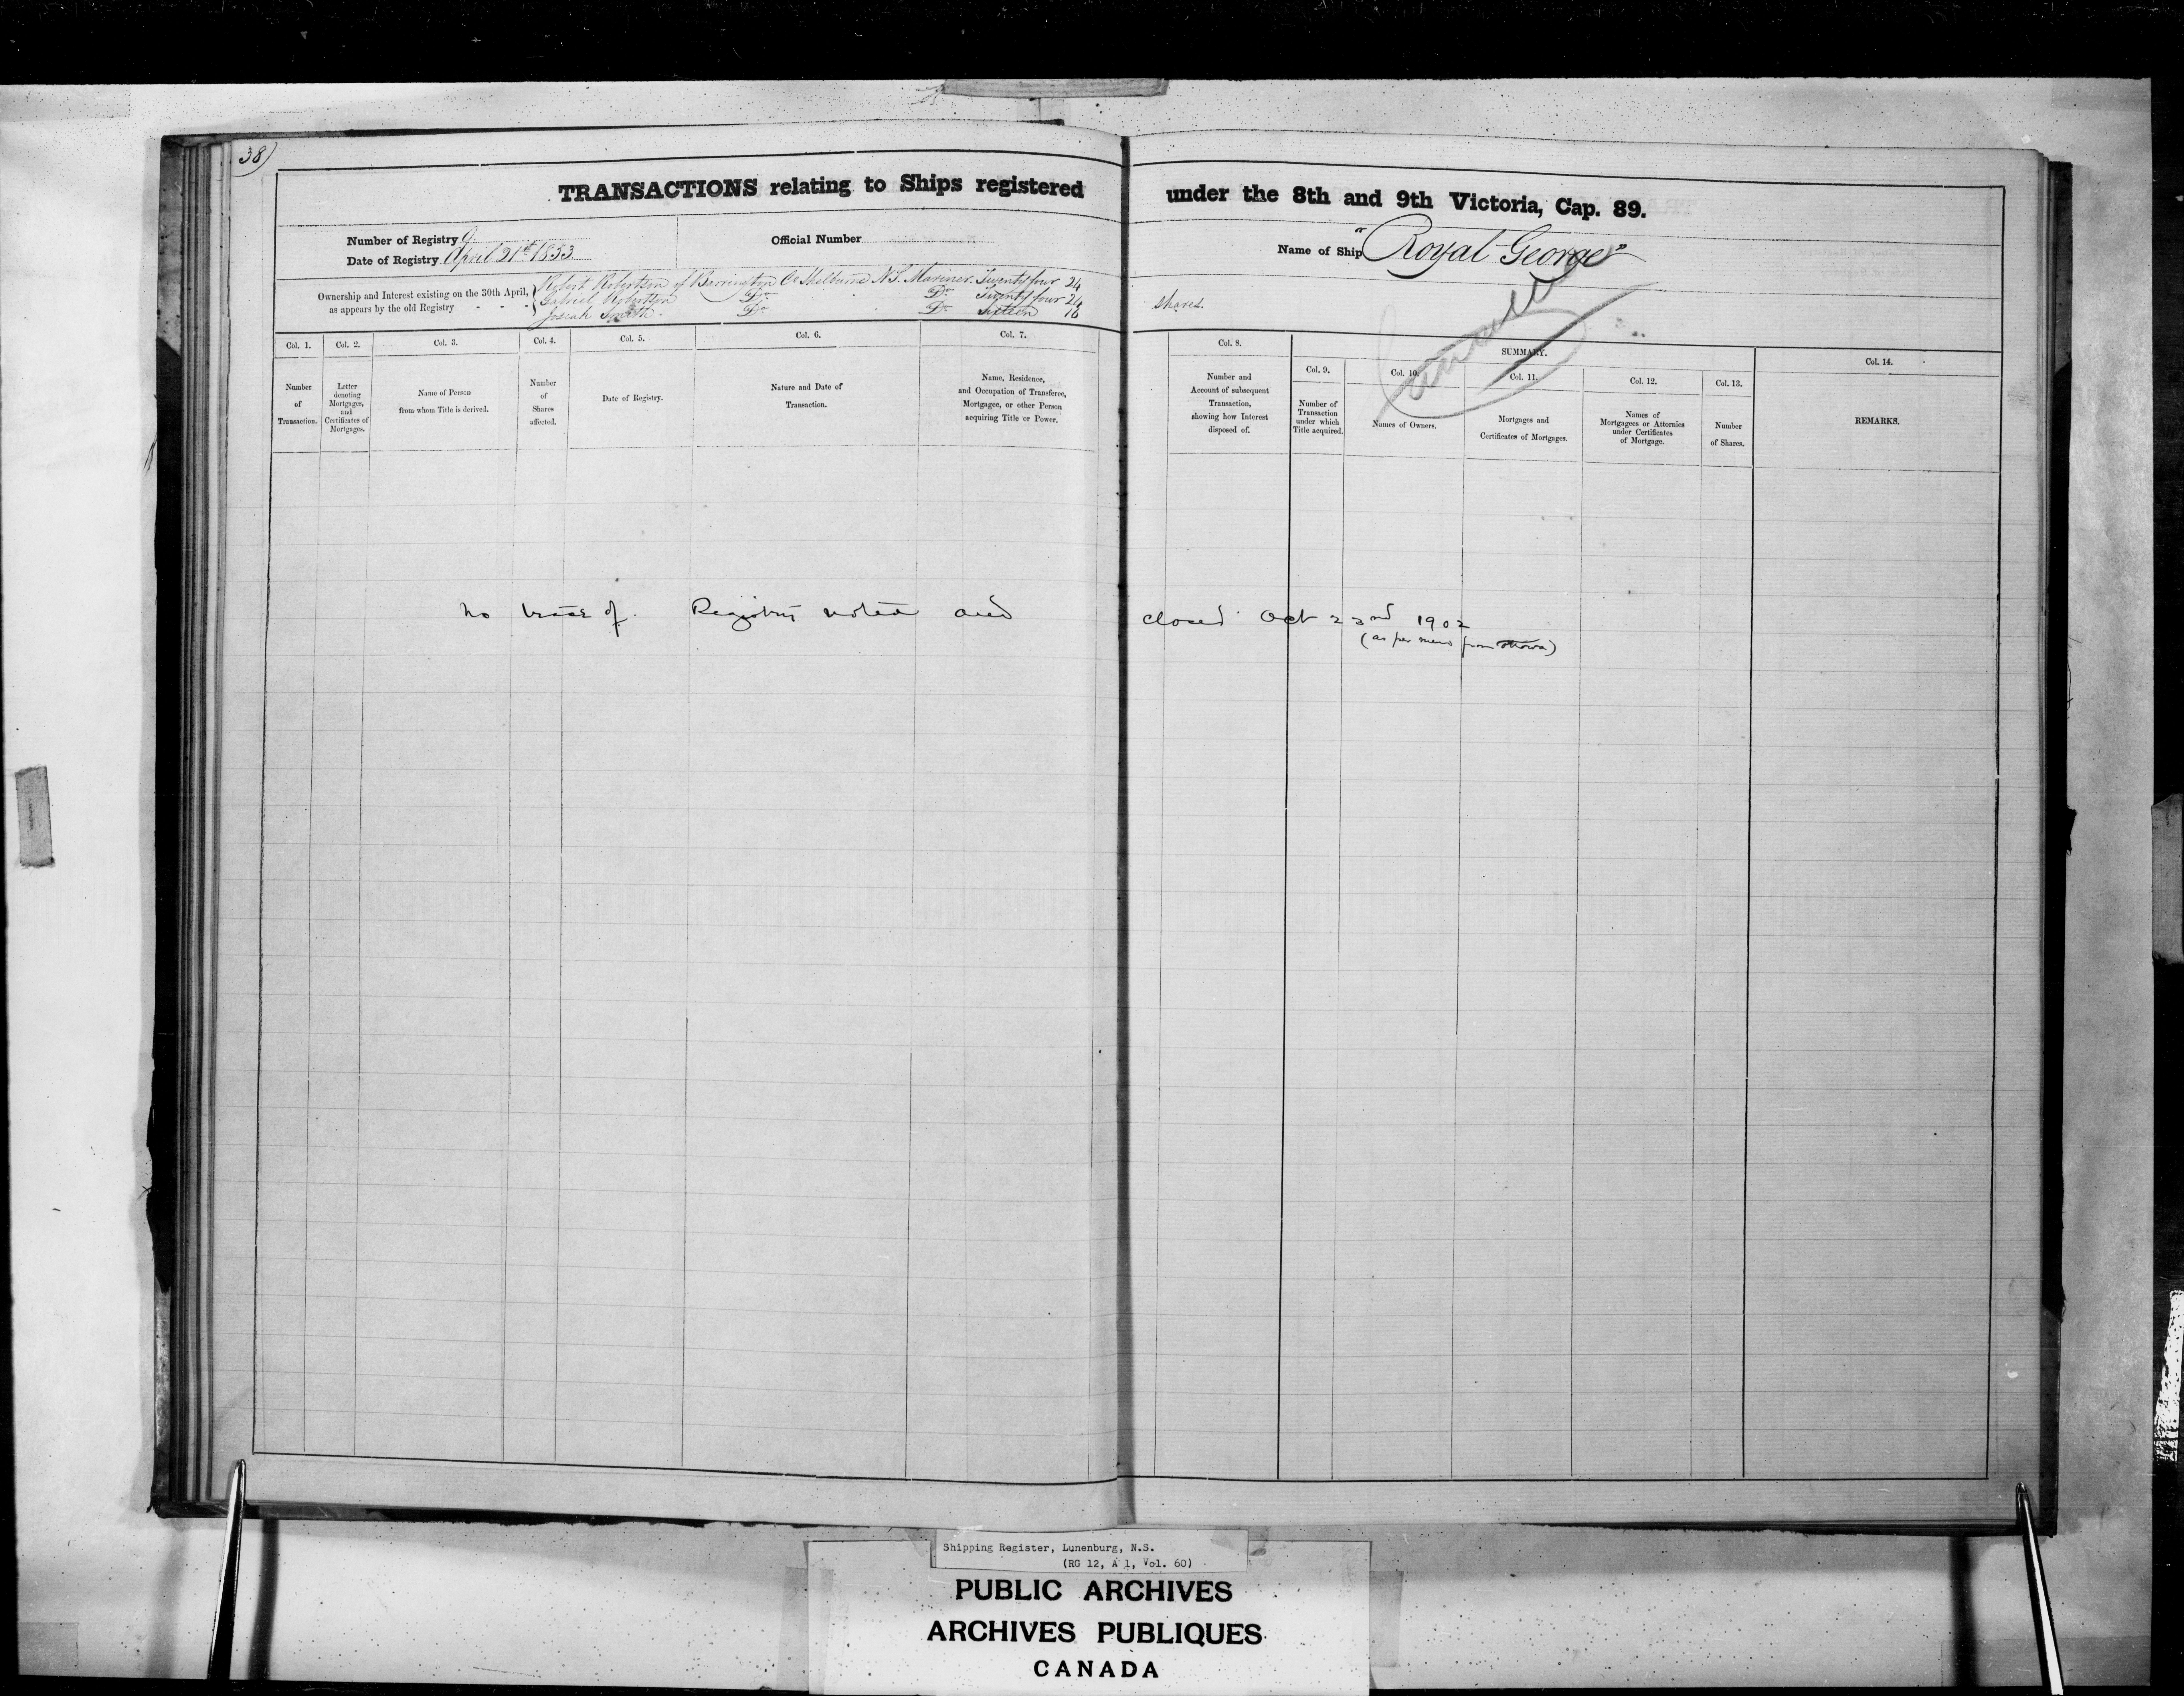 38)
TRANSACTIONS relating to Ships registered under the 8th and 9th Victoria, Cap. 89.
Number of Registry 9
Date of Registry April 21st 1853
Official Number
Name of Ship "Royal George"
Ownership and Interest existing on the 30th April, as appears by the old Registry - - -
Robert Robertson of Barrington Co Shelburne N.S. Mariner Twenty four 24
Gabriel Robertson Do Do Twenty four 24
Josiah Smith Do Do Sixteen 16 shares.
Col. 1.
Number
of
Transaction.
Col. 2.
Letter
denoting
Mortgages,
and
Certificates of
Mortgages.
Col. 3.
Name of Person
from whom Title is derived.
Col. 4.
Number
of
Shares
affected.
Col. 5.
Date of Registry.
Col. 6.
Nature and Date of
Transaction.
Col. 7.
Name, Residence,
and Occupation of Transferee,
Mortgagee, or other Person
acquiring Title or Power.
Col. 8.
Number and
Account of subsequent
Transaction,
showing how Interest
disposed of.
SUMMARY.
Col. 9.
Number of
Transaction
under which
Title acquired.
Col. 10.
Names of Owners.
Col. 11.
Mortgages and
Certificates of Mortgages.
Col. 12.
Names of
Mortgagees or Attornies
under Certificates
of Mortgage.
Col. 13.
Number
of Shares.
Col. 14.
REMARKS.
no trace of. Registry noted and closed Oct 23nd 1902
(as per memo from Ottawa)
Shipping Register, Lunenburg, N.S.
(RG 12, A 1, Vol. 60)
PUBLIC ARCHIVES
ARCHIVES PUBLIQUES
CANADA